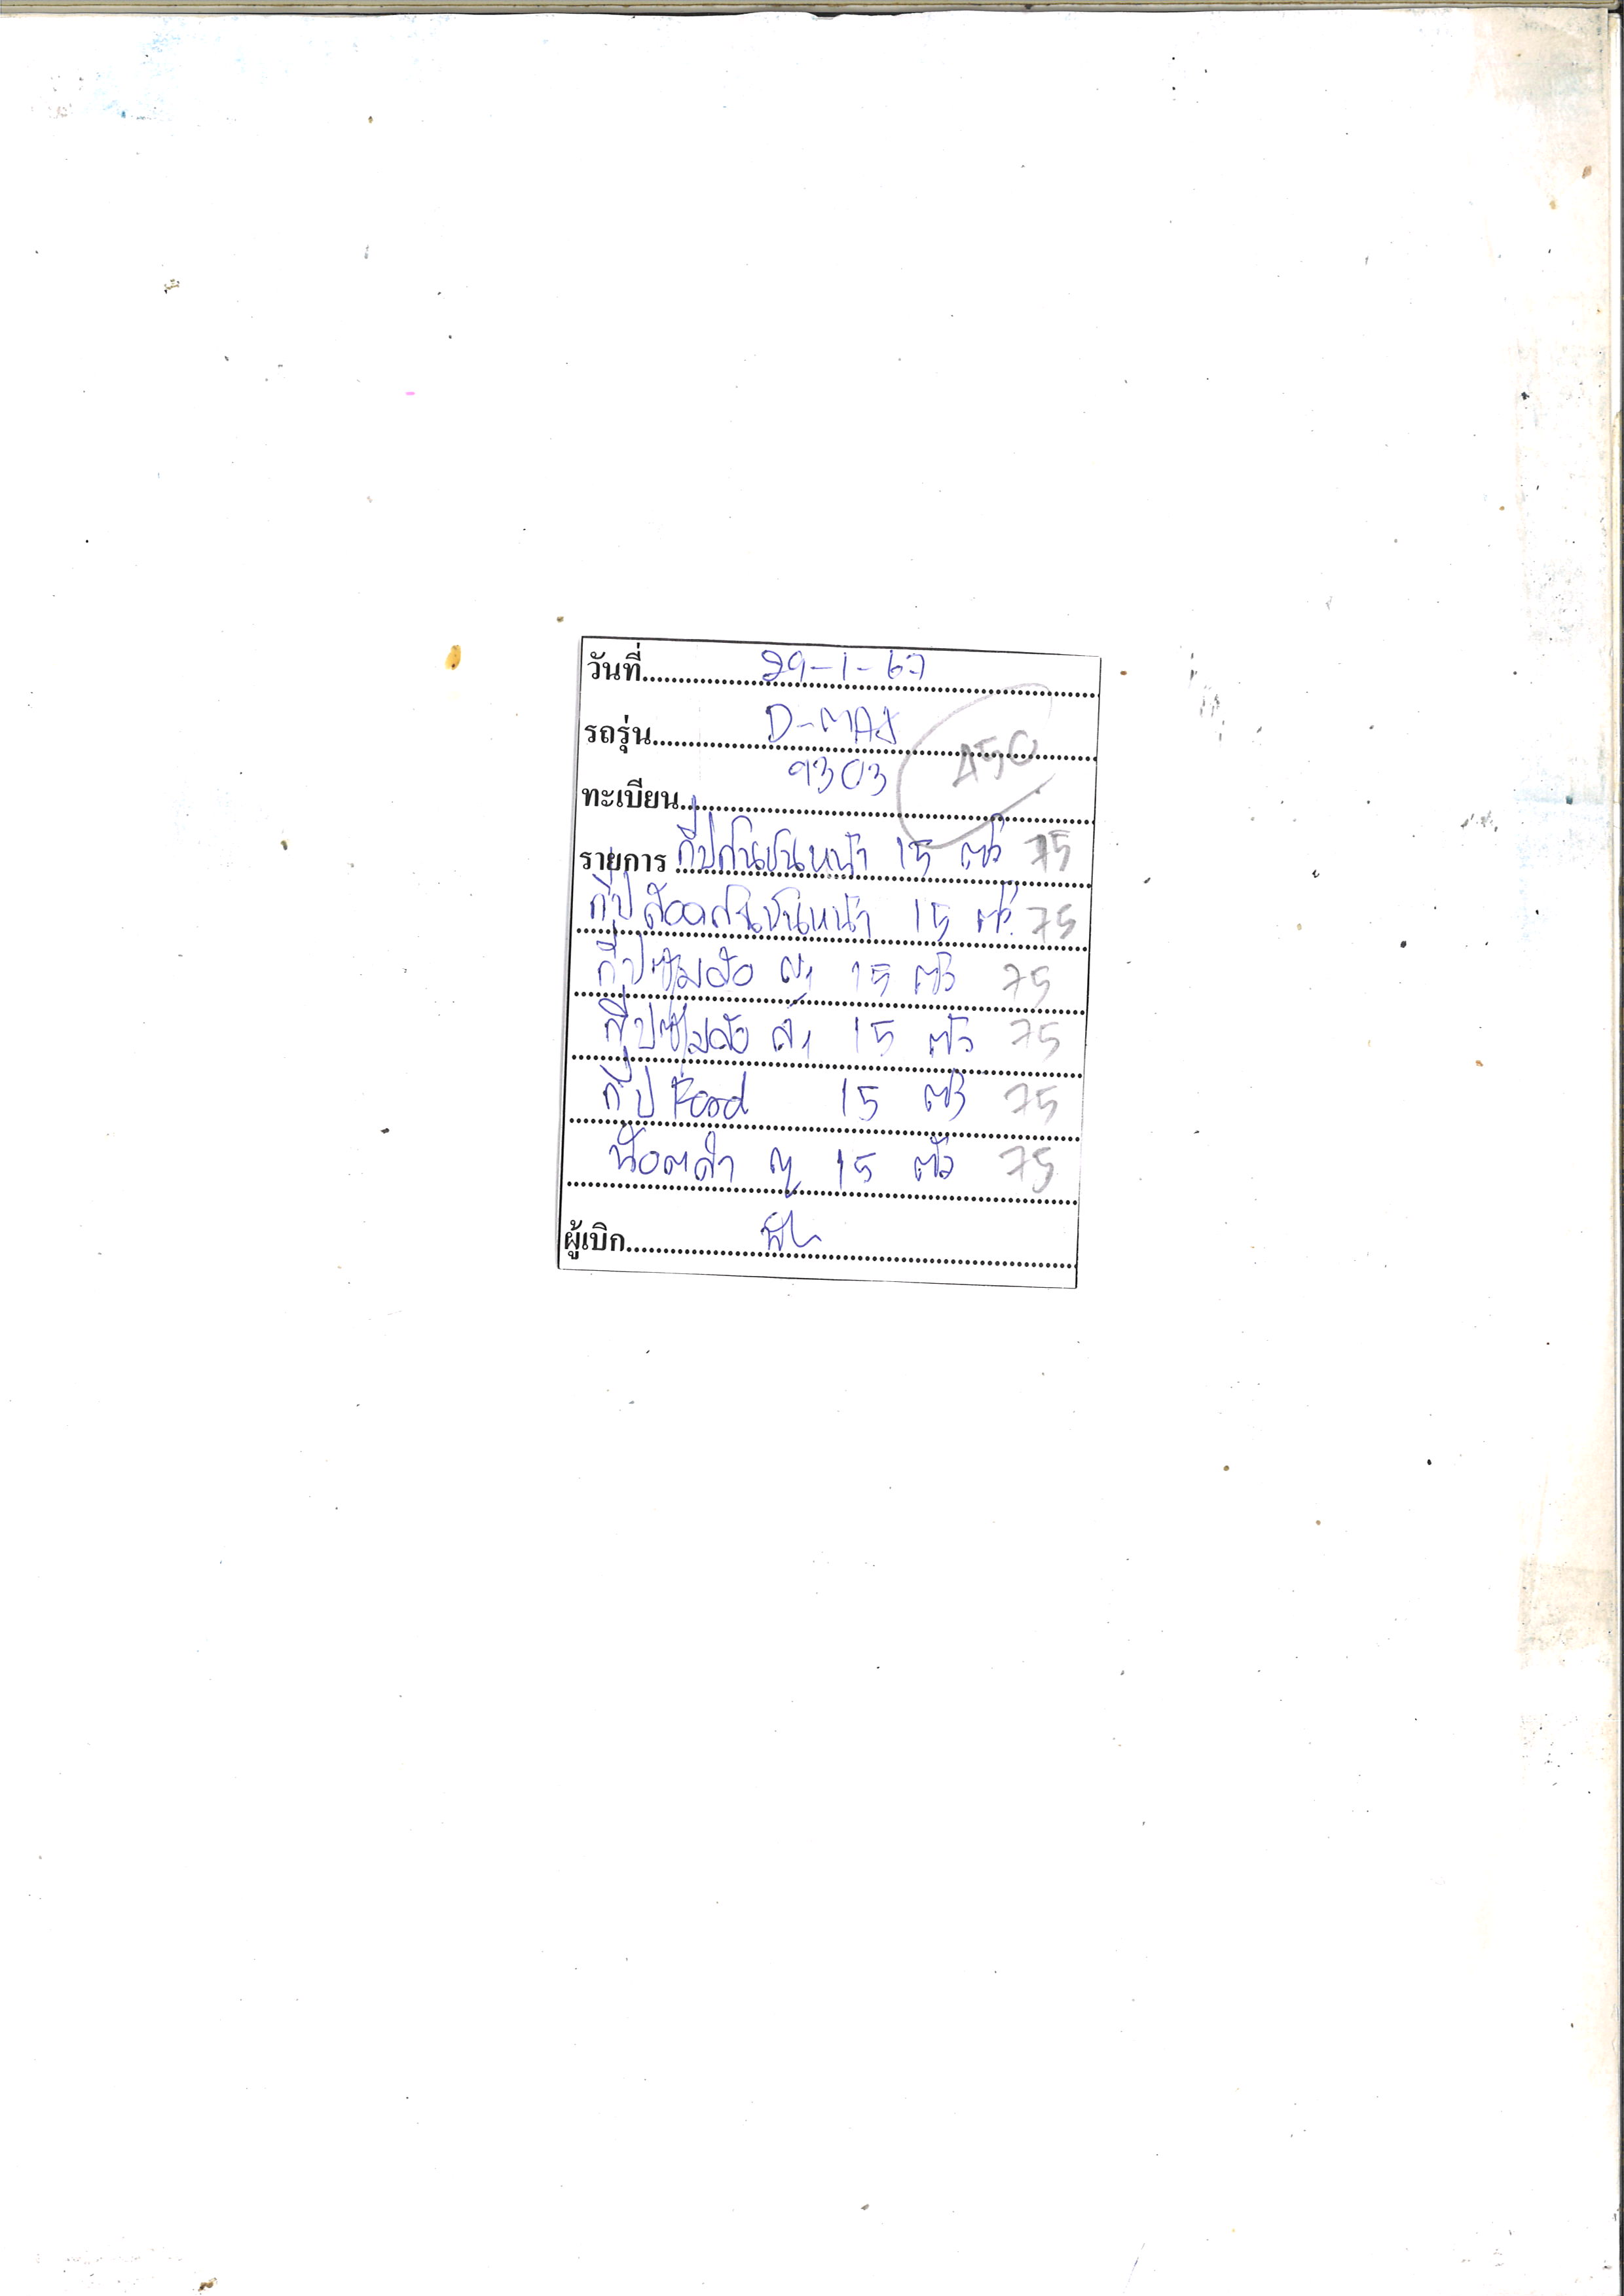 วันที่ 29-1-67
รถรุ่น D-MAX
450
ทะเบียน 9303
รายการ กิ๊ปกันชนหน้า 15 ตัว 75
กิ๊ปล็อคกันชนหน้า 15 ตัว 75
กิ๊ปซุ้มล้อ ญ 15 ตัว 75
กิ๊ปซุ้มล้อ ล 15 ตัว 75
กิ๊ป Ford 15 ตัว 75
น๊อตดำ ญ 15 ตัว 75
ผู้เบิก